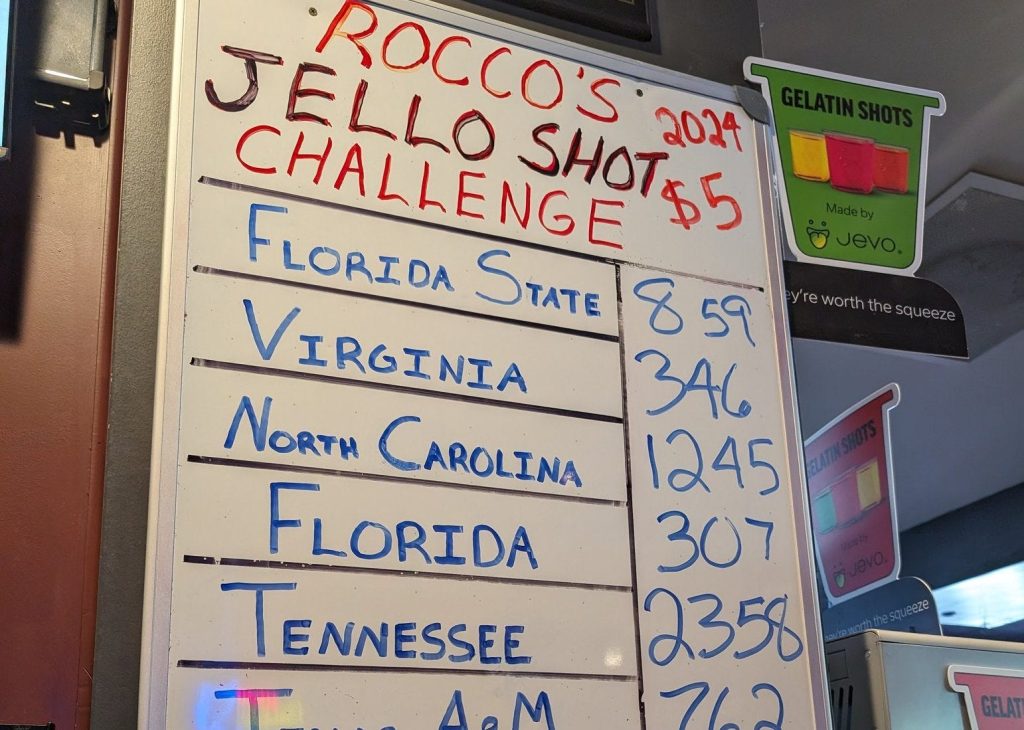 ROCCO'S
JELLO SHOT 2024
CHALLENGE $5
FLORIDA STATE 859
VIRGINIA 346
NORTH CAROLINA 1245
FLORIDA 307
TENNESSEE 2358
A&M 762
GELATIN SHOTS
Made by
Jevo.
ey're worth the squeeze
ELATIN SHOTS
Made by
Jevo.
hey're worth the squeeze
GELATI